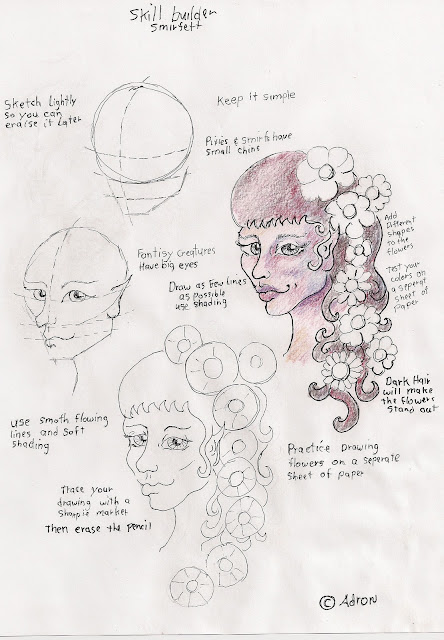 Skill builder
Smirfett
Sketch Lightly
so you can
eraise it Later
Keep it simple
Pixies & smirfs have
small chins
Fantisy creatures
Have big eyes
Draw as few Lines
as possible
use shading
Add
Different
shapes
to the
flowers
Test your
colors on
a seperat
sheet of
paper
Dark Hair
will make
the flowers
stand out
use smoth flowing
lines and soft
shading
Practice Drawing
flowers on a seperate
sheet of paper
Trace your
drawing with a
Sharpie market
Then erase the pencil
© Adron